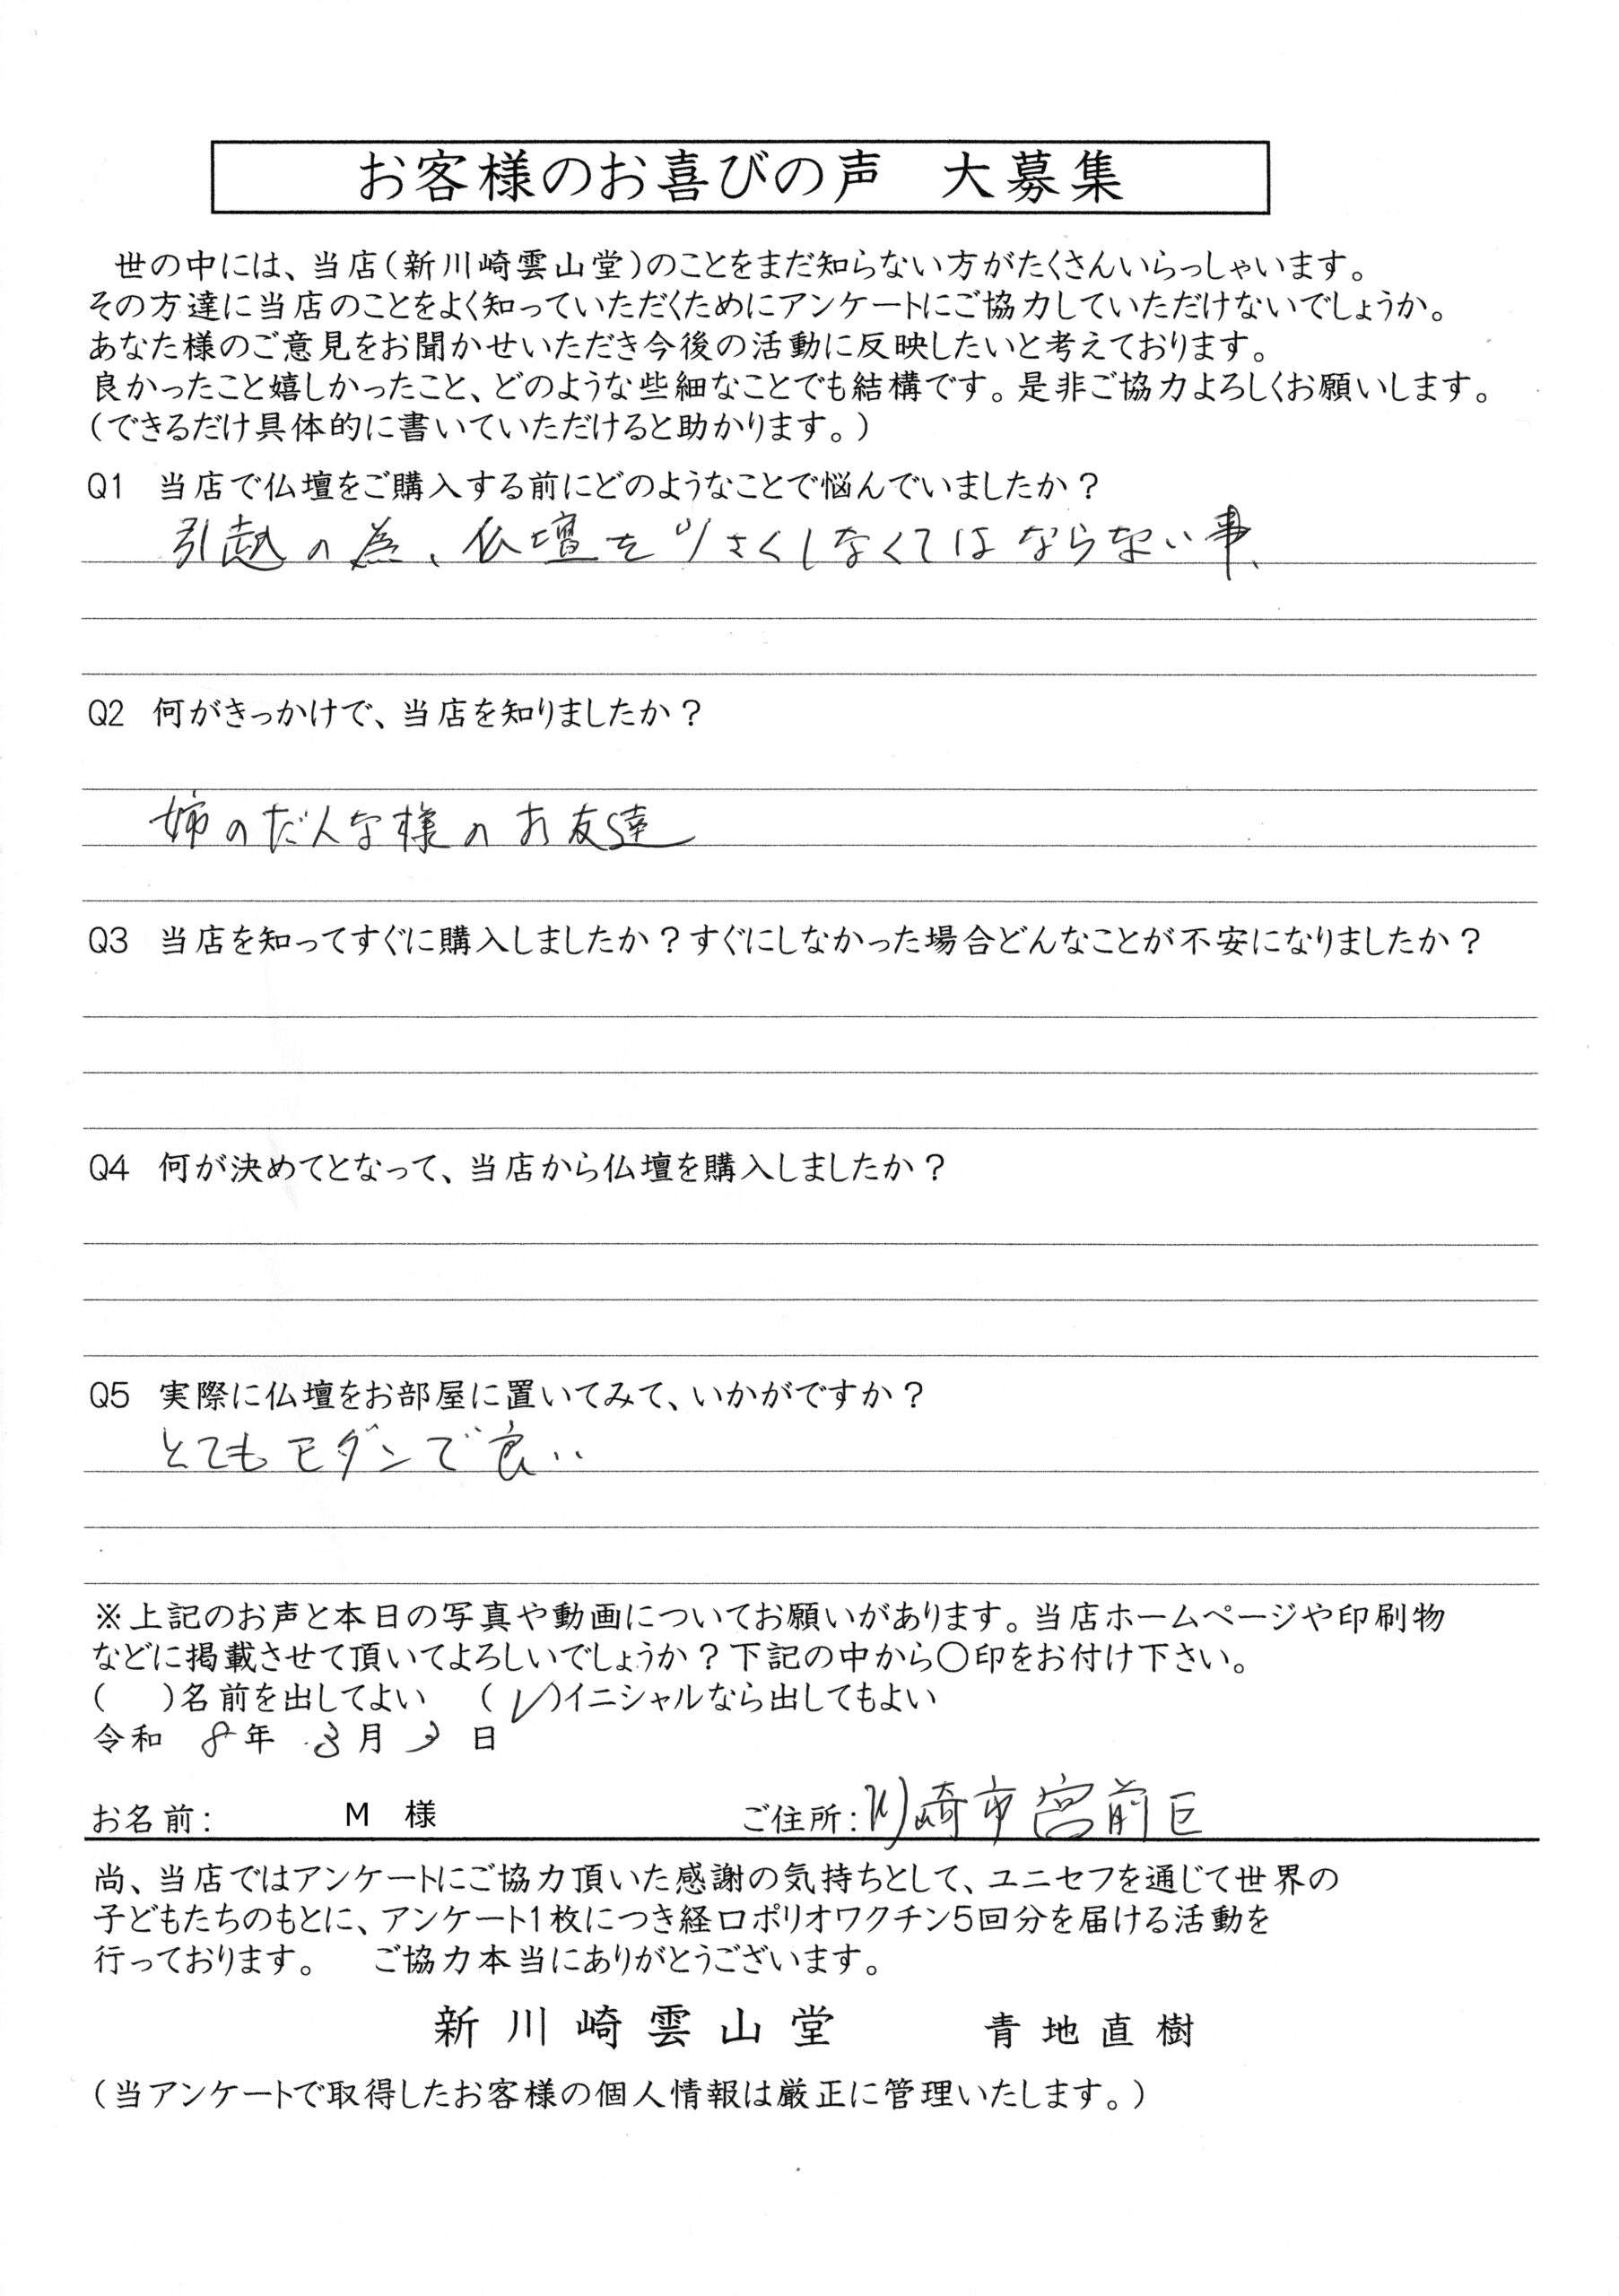 お客様のお喜びの声　大募集
世の中には、当店（新川崎雲山堂）のことをまだ知らない方がたくさんいらっしゃいます。
その方達に当店のことをよく知っていただくためにアンケートにご協力していただけないでしょうか。
あなた様のご意見をお聞かせいただき今後の活動に反映したいと考えております。
良かったこと嬉しかったこと、どのような些細なことでも結構です。是非ご協力よろしくお願いします。
（できるだけ具体的に書いていただけると助かります。）
Q1　当店で仏壇をご購入する前にどのようなことで悩んでいましたか？
引越の為、仏壇を小さくしなくてはならない事、
Q2　何がきっかけで、当店を知りましたか？
姉のだんな様のお友達
Q3　当店を知ってすぐに購入しましたか？すぐにしなかった場合どんなことが不安になりましたか？
Q4　何が決めてとなって、当店から仏壇を購入しましたか？
Q5　実際に仏壇をお部屋に置いてみて、いかがですか？
とてもモダンで良い
※上記のお声と本日の写真や動画についてお願いがあります。当店ホームページや印刷物
などに掲載させて頂いてよろしいでしょうか？下記の中から〇印をお付け下さい。
（　　）名前を出してよい　（レ）イニシャルなら出してもよい
令和　8年　3月　3　日
お名前：　M　様　ご住所：川崎市宮前区
尚、当店ではアンケートにご協力頂いた感謝の気持ちとして、ユニセフを通じて世界の
子どもたちのもとに、アンケート1枚につき経口ポリオワクチン5回分を届ける活動を
行っております。　ご協力本当にありがとうございます。
新川崎雲山堂　青地直樹
（当アンケートで取得したお客様の個人情報は厳正に管理いたします。）